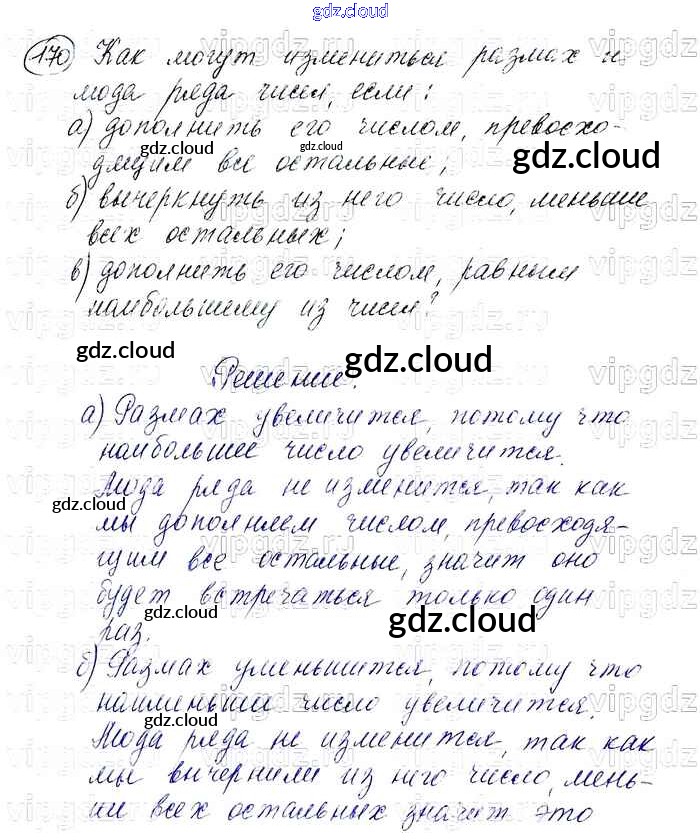 gdz.cloud
170 Как могут измениться размах и
мода ряда чисел, если:
а) дополнить его числом, превосхо-
дящим все остальные;
gdz.cloud
gdz.cloud
б) вычеркнуть из него число, меньше
всех остальных;
в) дополнить его числом, равным
наибольшему из чисел?
gdz.cloud
gdz.cloud
Решение.
а) Размах увеличится, потому что
наибольшее число увеличится.
Мода ряда не изменится, так как
gdz.cloud
мы дополняем числом, превосходя-
щим все остальные, значит оно
будет встречаться только один
gdz.cloud
gdz.cloud
раз.
б) Размах уменьшится, потому что
наименьша число увеличится.
gdz.cloud
Мода ряда не изменится, так как
мы вычернили из него число, мень-
ши всех остальных значит это